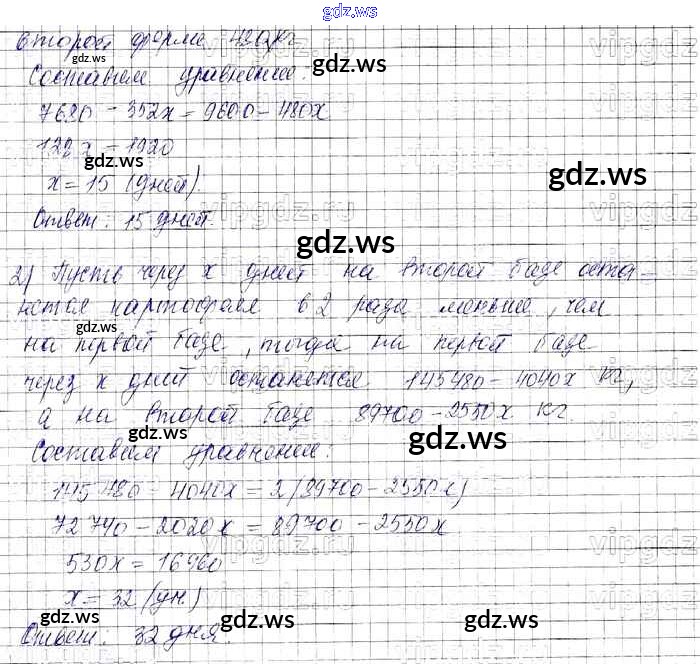 gdz.ws
второй ферме 480 кг
gdz.ws
gdz.ws
Составим уравнение:
7680 - 352x = 9600 - 480x
128x = 1920
gdz.ws
gdz.ws
x = 15 (дней).
Ответ: 15 дней.
gdz.ws
gdz.ws
2) Пусть через x дней на второй базе оста-
нется картофеля в 2 раза меньше, чем
gdz.ws
на первой базе, тогда на первой базе
через x дней останется 145480 - 4040x кг,
gdz.ws
а на второй базе 89700 - 2550x кг
gdz.ws
Составим уравнение:
145480 - 4040x = 2(89700 - 2550x)
72740 - 2020x = 89700 - 2550x
530x = 16960
x = 32 (дн.)
gdz.ws
gdz.ws
gdz.ws
Ответ: 32 дня.